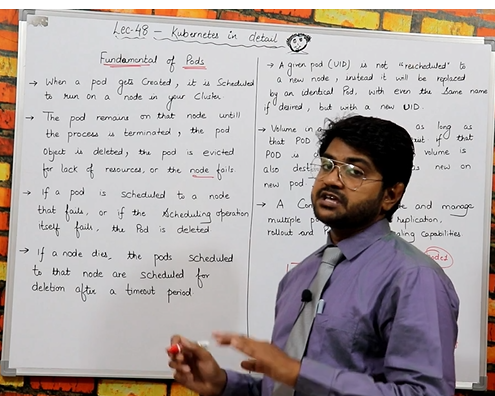 Lec-48 - Kubernetes in detail
Fundamental of Pods
→ When a pod gets Created, it is Scheduled
to run on a node in your Cluster
→ The pod remains on that node untill
the process is terminated, the pod
Object is deleted, the pod is evicted
for lack of resources, or the node fails.
→ If a pod is scheduled to a node
that fails, or if the Scheduling operation
itself fails, the Pod is deleted
→ If a node dies, the pods scheduled
to that node are scheduled for
deletion after a timeout period
→ A given pod (UID) is not "rescheduled" to
a new node, instead it will be replaced
by an identical Pod, with even the same name
if desired, but with a new UID.
→ Volume in a as long as
that POD if that
POD is volume is
also new on
new pod
→ A and manage
multiple replication,
rollout and capabilities